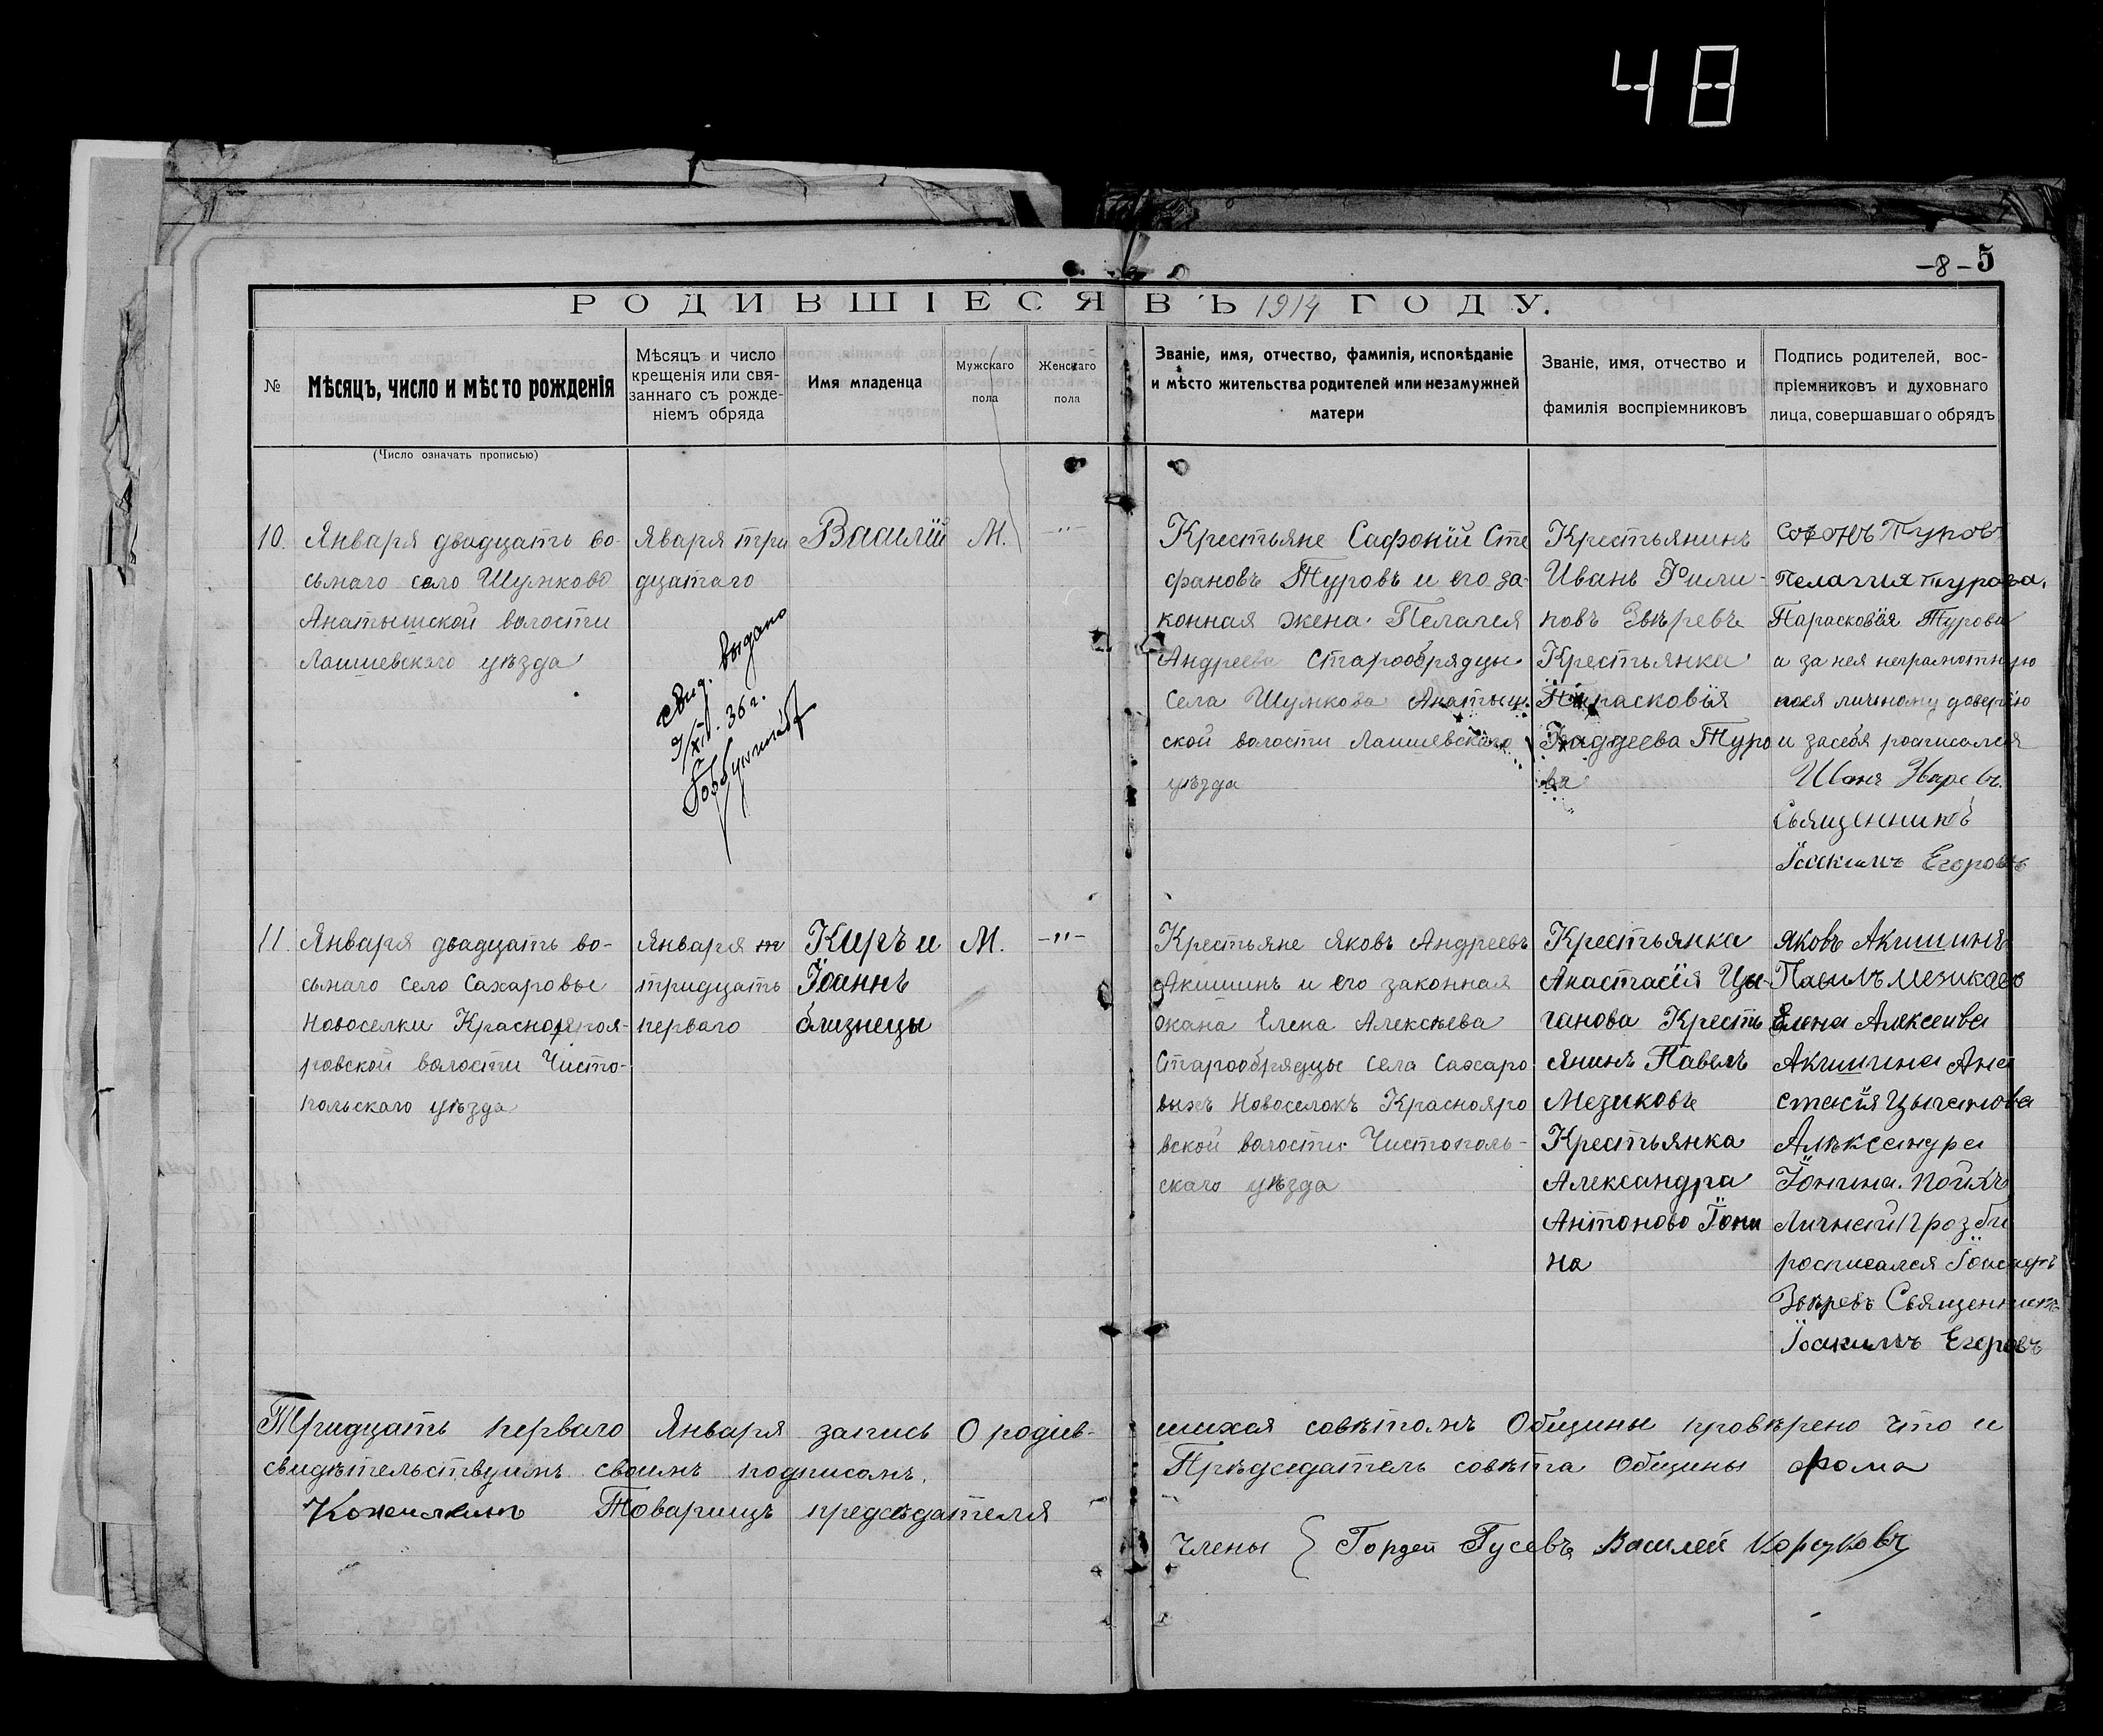 48
-8- 5
РОДИВШІЕСЯ ВЪ 1914 ГОДУ.
№
Мѣсяцъ, число и мѣсто рожденія
Мѣсяцъ и число
крещенія или свя-
заннаго съ рожде-
ніемъ обряда
Имя младенца
Мужскаго
пола
Женскаго
пола
Званіе, имя, отчество, фамилія, исповѣданіе
и мѣсто жительства родителей или незамужней
матери
Званіе, имя, отчество и
фамилія воспріемниковъ
Подпись родителей, вос-
пріемниковъ и духовнаго
лица, совершавшаго обрядъ
(Число означать прописью)
10.
Января двадцать во-
сьмаго село Шумково
Анатышской волости
Лаишевскаго уѣзда
Яваря три
дцатаго
свид. выдано
9/XII. 36 г.
Василій
М.
-"-
Крестьяне Сафоній Сте
фановъ Туровъ и его за-
конная жена Пелагея
Андреева старообрядцы
села Шумкова Анатыш-
ской волости Лаишевскаго
уѣзда
Крестьянинъ
Иванъ Фили-
повъ Звѣревъ
Крестьянка
Парасковія
Фаддеева Туро
ва
Софонъ Туровъ
Пелагия турова.
Парасковія Турова
а за нея неграмотную
по ея личному доверію
и засебя росписался
Священникъ
Іоакимъ Егоровъ
11.
Января двадцать во-
сьмаго село Сахаровы
Новоселки Краснояроя-
ровской волости Чисто-
польскаго уѣзда
Января т
тридцать
перваго
Киръ и
Іоаннъ
близнецы
М.
-"-
Крестьяне Яковъ Андреевъ
Акишинъ и его законная
жана Елена Алексѣева
старообрядцы села Сахаро
выхъ Новоселокъ Краснояро
вской волости Чистополь-
скаго уѣзда
Крестьянка
Анастасія Цы-
ганова Кресть
янинъ Павелъ
Мезиковъ
Крестьянка
Александра
Антоново Іони
на
Яковъ Акишинъ
Павилъ Мезикавъ
Елена Алексеива
Акишина Ана
стасія Цыганова
Алѣксандра
Іонина. Поихъ
Личнай прозби
росписался
Звѣревъ Священникъ
Іоакимъ Егоровъ
Тридцать перваго Января запись о родив-
шихся совѣтомъ Общины провѣрено что и
свидѣтельствуимъ своимъ подписомъ.
Прѣдседатель совѣта Общины Фома
Кожемякинъ Товарищъ предсѣдателя
Члены { Гордей Гусевъ Василей